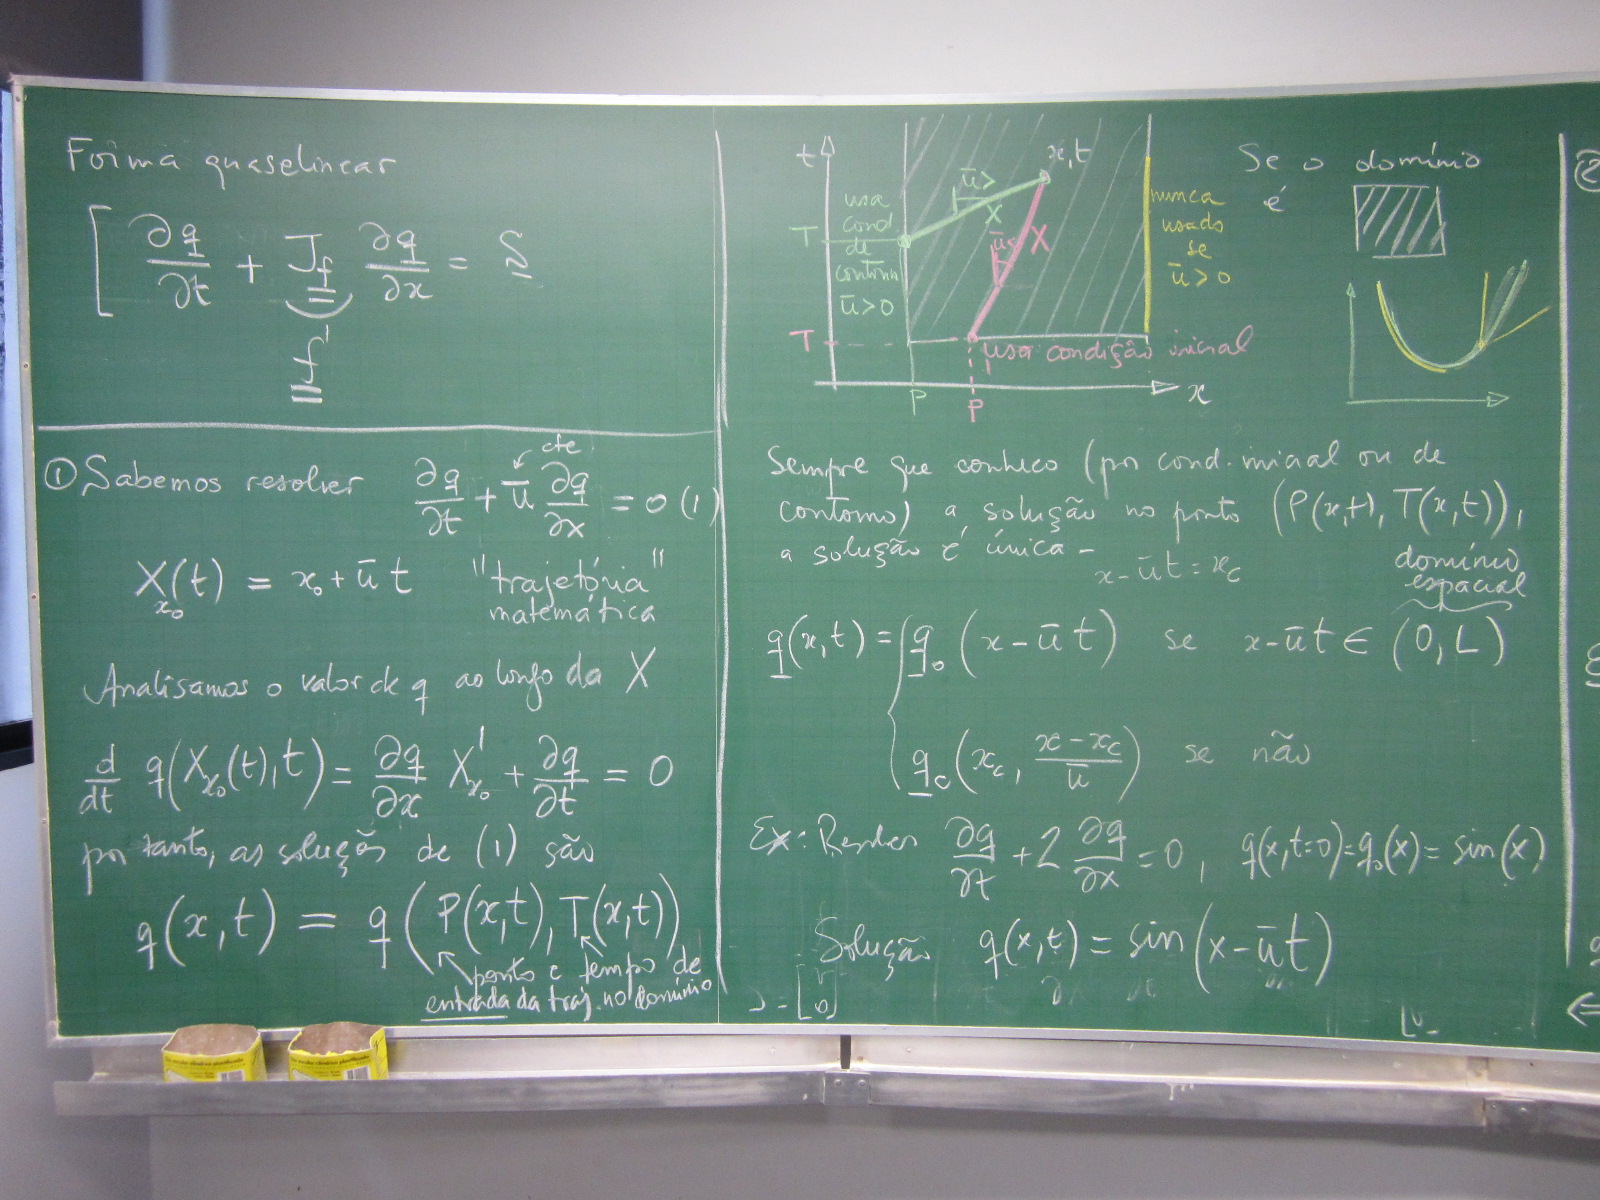 Forma quaselinear
[ ∂q/∂t + J_f ∂q/∂x = S
f'
① Sabemos resolver ∂q/∂t + ū ∂q/∂x = 0 (1)
cte
X_{x₀}(t) = x₀ + ū t "trajetória"
matemática
Analisamos o valor de q ao longo da X
d/dt q(X_{x₀}(t), t) = ∂q/∂x X'_{x₀} + ∂q/∂t = 0
portanto, as soluções de (1) são
q(x,t) = q(P(x,t), T(x,t))
ponto e tempo de
entrada da traj. no domínio
t
x,t
usa
cond
de
contorno
ū>0
T
ū>
X
ū<
X
nunca
usado
se
ū>0
T
usa condição inicial
x
P
P
Se o domínio
é
Sempre que conheço (por cond. inicial ou de
contorno) a solução no ponto (P(x,t), T(x,t)),
a solução é única –
x - ūt = x_c
domínio
espacial
q(x,t) = { q₀(x - ū t) se x - ūt ∈ (0, L)
q_c(x_c, (x - x_c)/ū) se não
Ex: Resolver ∂q/∂t + 2 ∂q/∂x = 0, q(x,t=0)=q₀(x)= sin(x)
Solução q(x,t) = sin(x - ūt)
②